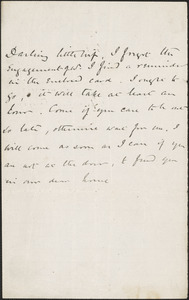 Darling little wife, I forgot the
engagement. I find a reminder
in the enclosed card. I ought to
go, & it will take at least an
hour. Come if you care to be out
so late, otherwise wait for me. I
will come as soon as I can if you
are not at the door, to find you
in our dear home